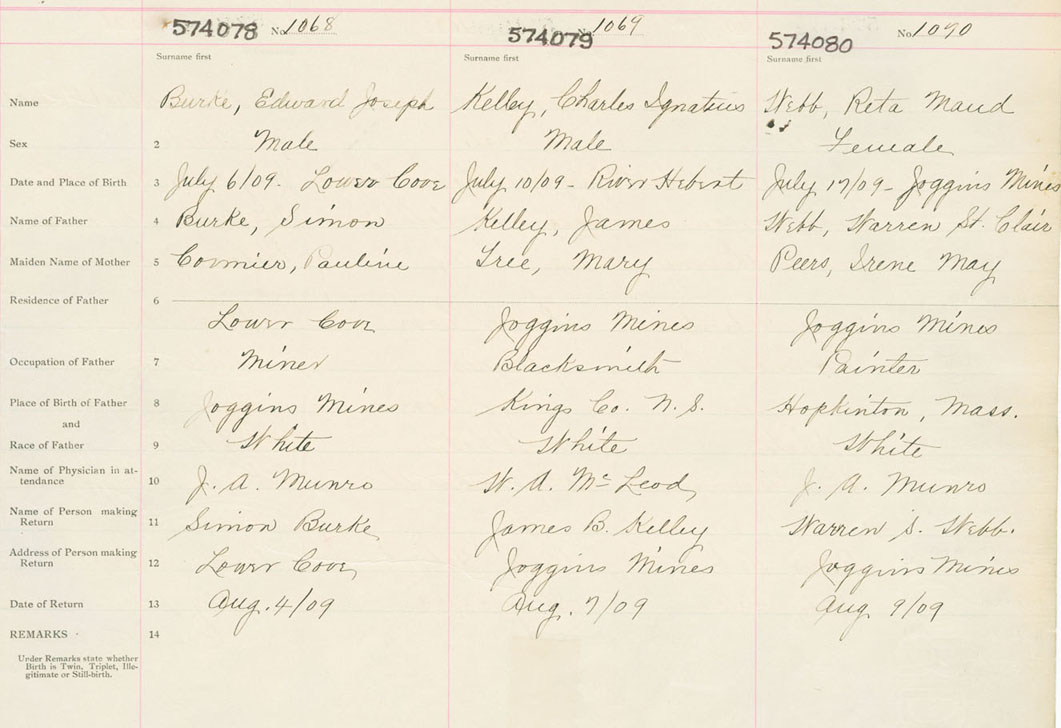 574078 No. 1068 574079 No. 1069 574080 No. 1070
Surname first Surname first Surname first
Name Burke, Edward Joseph Kelley, Charles Ignatius Webb, Reta Maud
Sex 2 Male Male Female
Date and Place of Birth 3 July 6/09. Lower Cove July 10/09 - River Hebert July 17/09 - Joggins Mines
Name of Father 4 Burke, Simon Kelley, James Webb, Warren St. Clair
Maiden Name of Mother 5 Cormier, Pauline Tree, Mary Peers, Irene May
Residence of Father 6
Lower Cove Joggins Mines Joggins Mines
Occupation of Father 7 Miner Blacksmith Painter
Place of Birth of Father 8 Joggins Mines Kings Co. N.S. Hopkinton, Mass.
and
Race of Father 9 White White White
Name of Physician in at-
tendance 10 J. A. Munro W. A. McLeod J. A. Munro
Name of Person making
Return 11 Simon Burke James B. Kelley Warren S. Webb.
Address of Person making
Return 12 Lower Cove Joggins Mines Joggins Mines
Date of Return 13 Aug. 4/09 Aug. 7/09 Aug 9/09
REMARKS 14
Under Remarks state whether
Birth is Twin, Triplet, Ille-
gitimate or Still-birth.